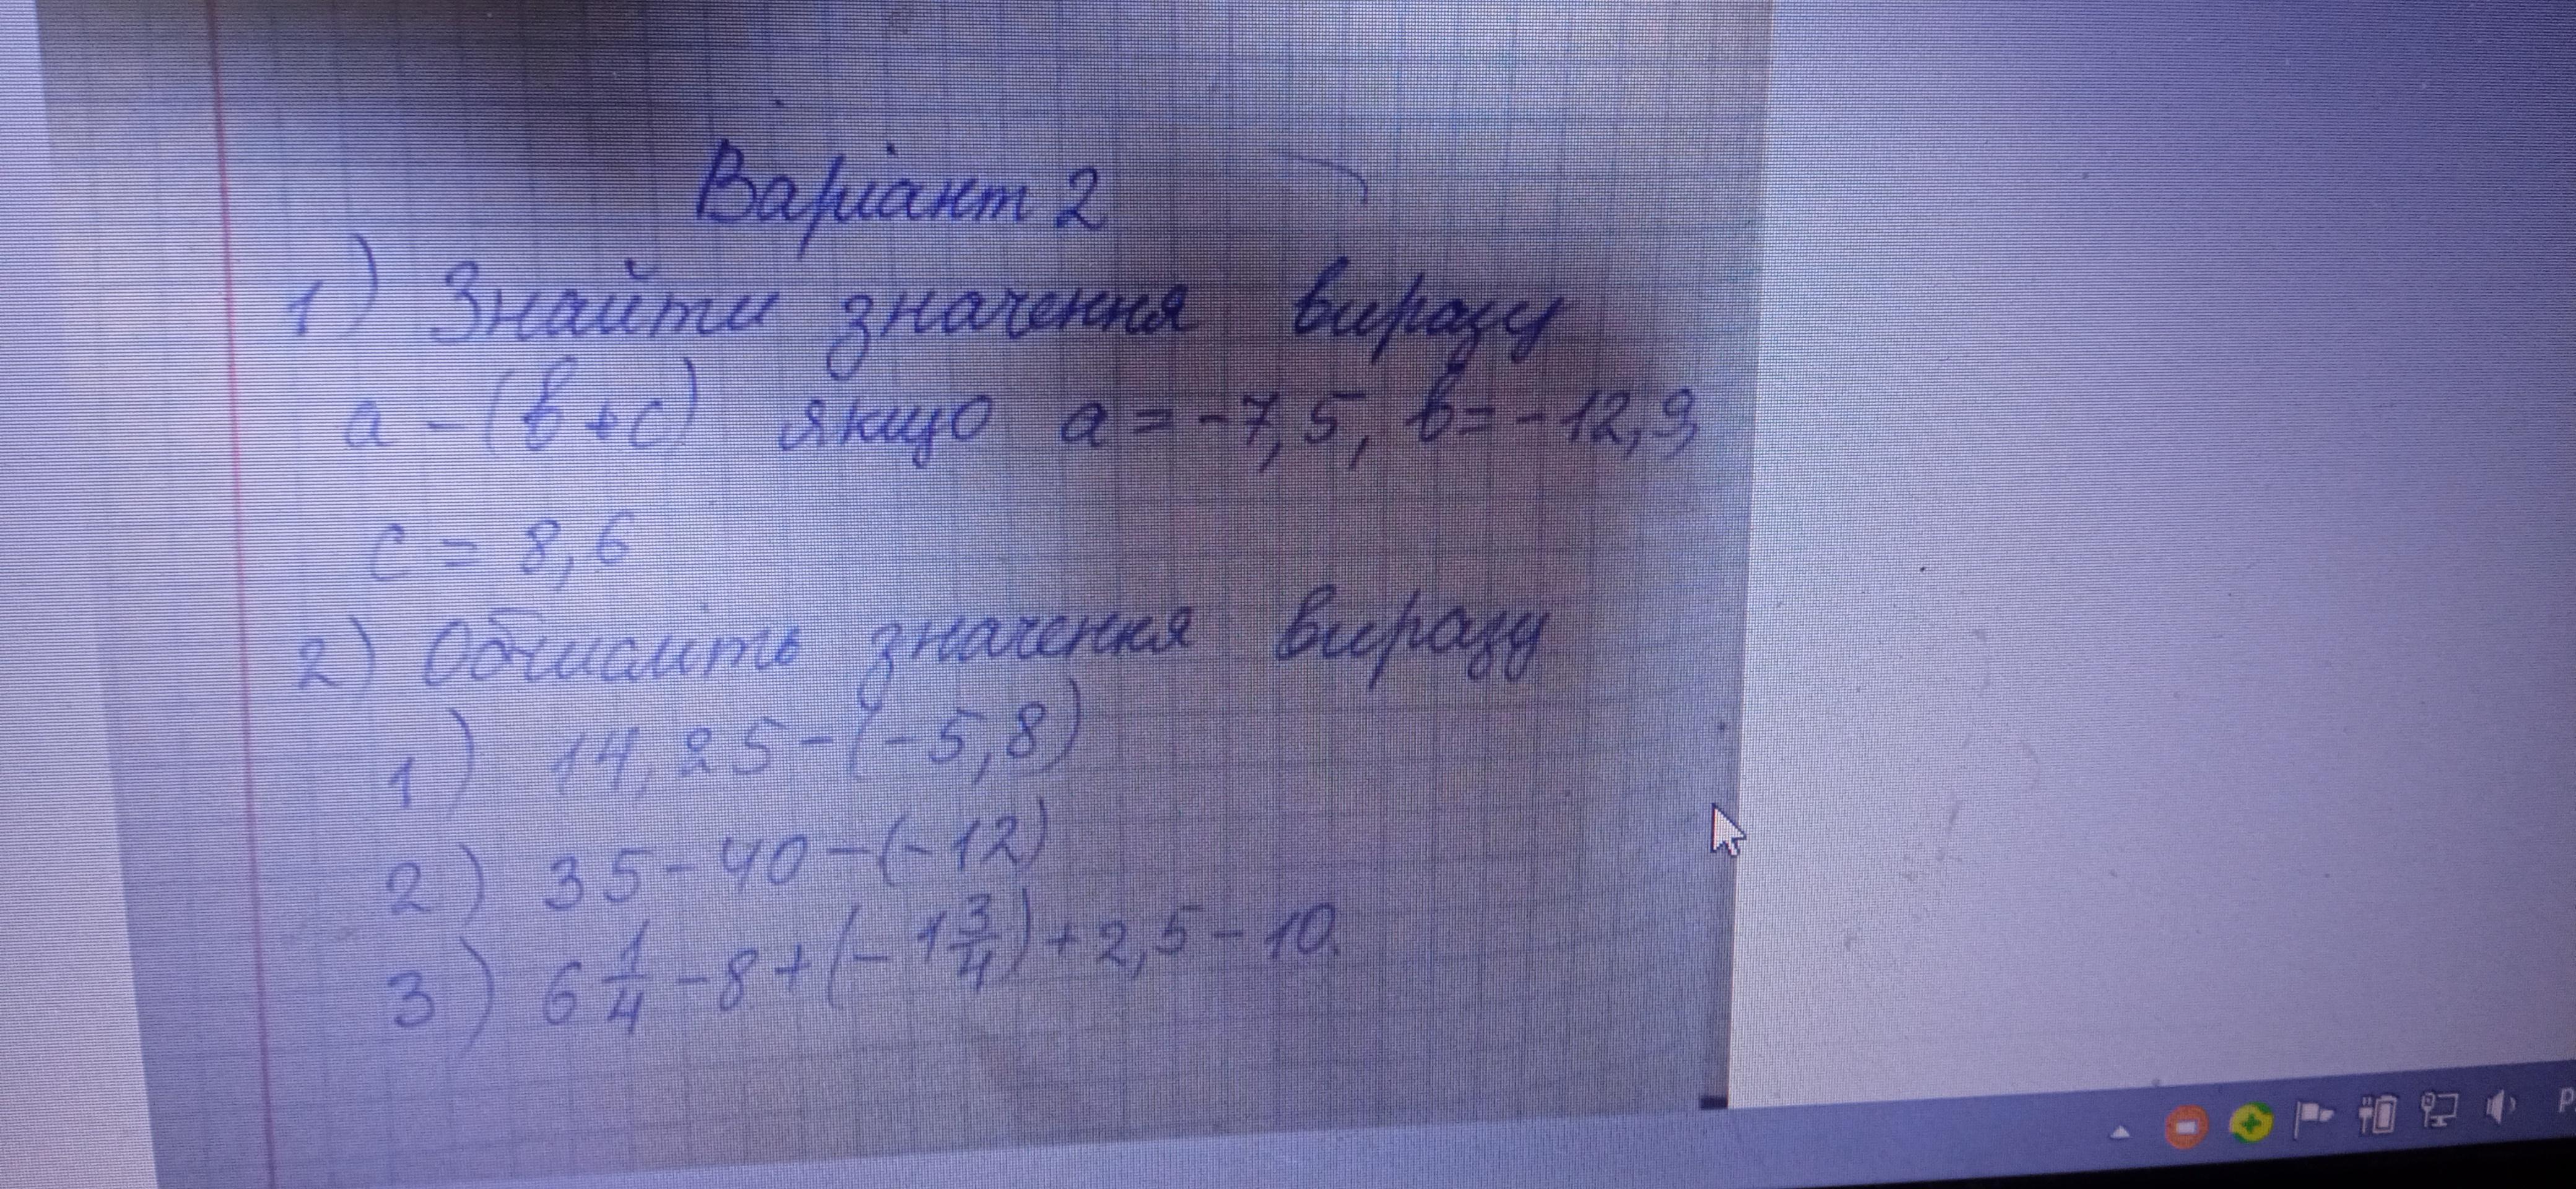 Варіант 2
1) Знайти значення виразу
a - (b+c) якщо a = -7,5, b = -12,9,
c = 8,6
2) Обчислить значення виразу
1) 14,25 - (-5,8)
2) 35 - 40 - (-12)
3) 6 1/4 - 8 + (- 1 3/4) + 2,5 - 10.